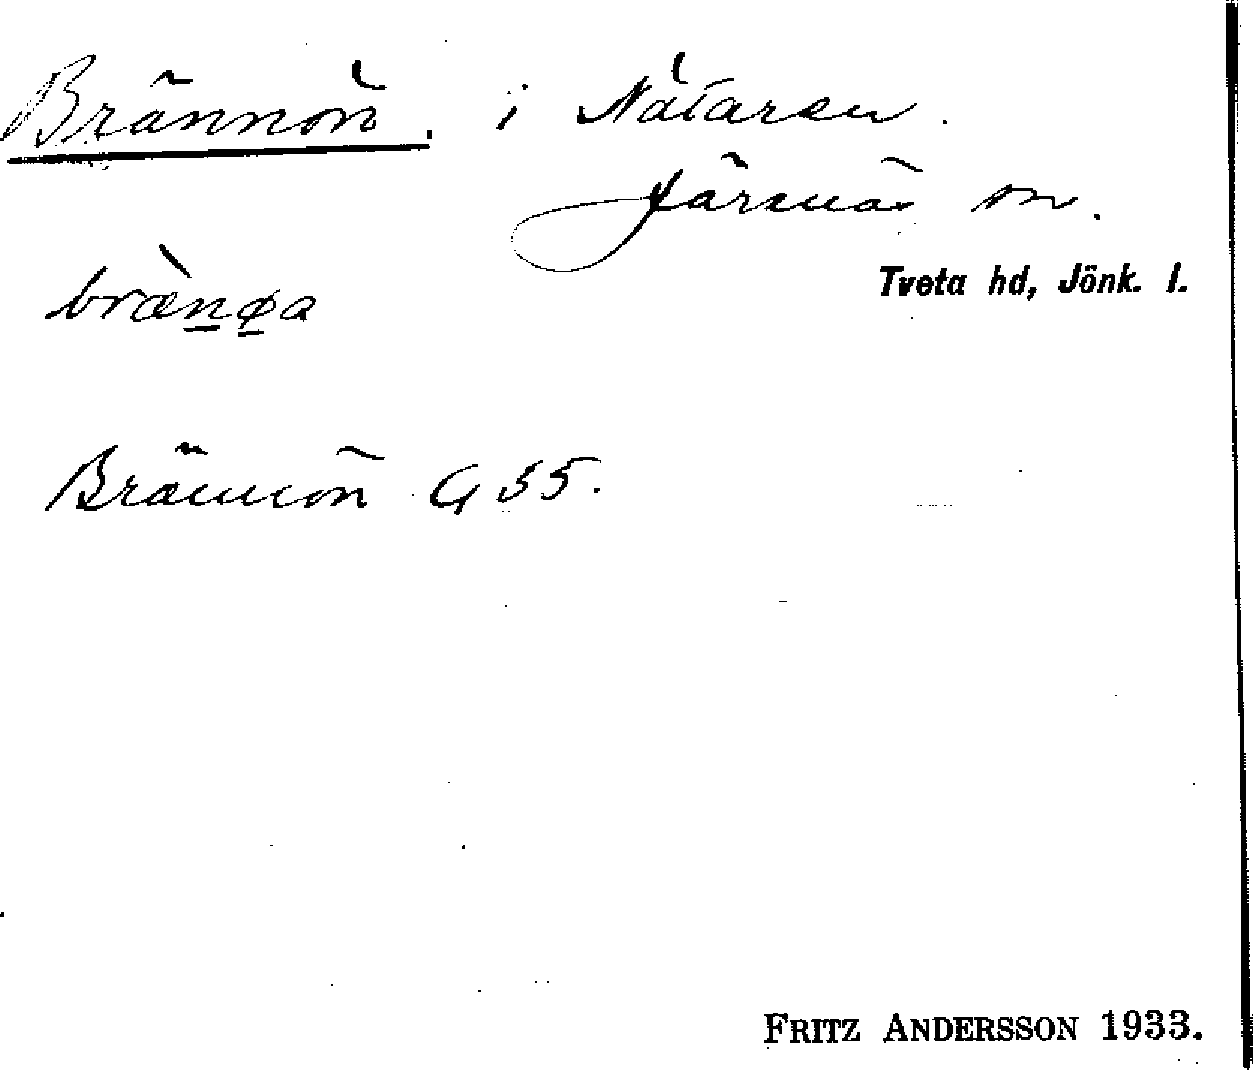 Brännön. i Nätaren.
Järsnäs sn.
Tveta hd, Jönk. l.
brænøa
Brännön G 55.
FRITZ ANDERSSON 1933.